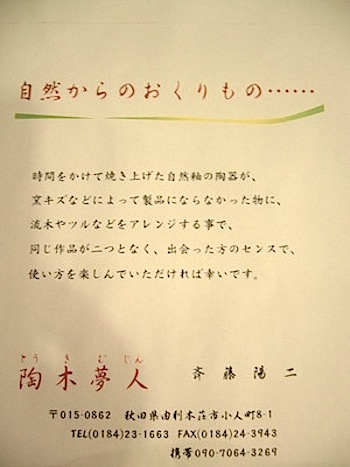 自然からのおくりもの……
時間をかけて焼き上げた自然釉の陶器が、
窯キズなどによって製品にならなかった物に、
流木やツルなどをアレンジする事で、
同じ作品が二つとなく、出会った方のセンスで、
使い方を楽しんでいただければ幸いです。
とう き む じん
陶木夢人 斉藤陽二
〒015-0862 秋田県由利本荘市小人町8-1
TEL(0184)23-1663 FAX(0184)24-3943
携帯090-7064-3269